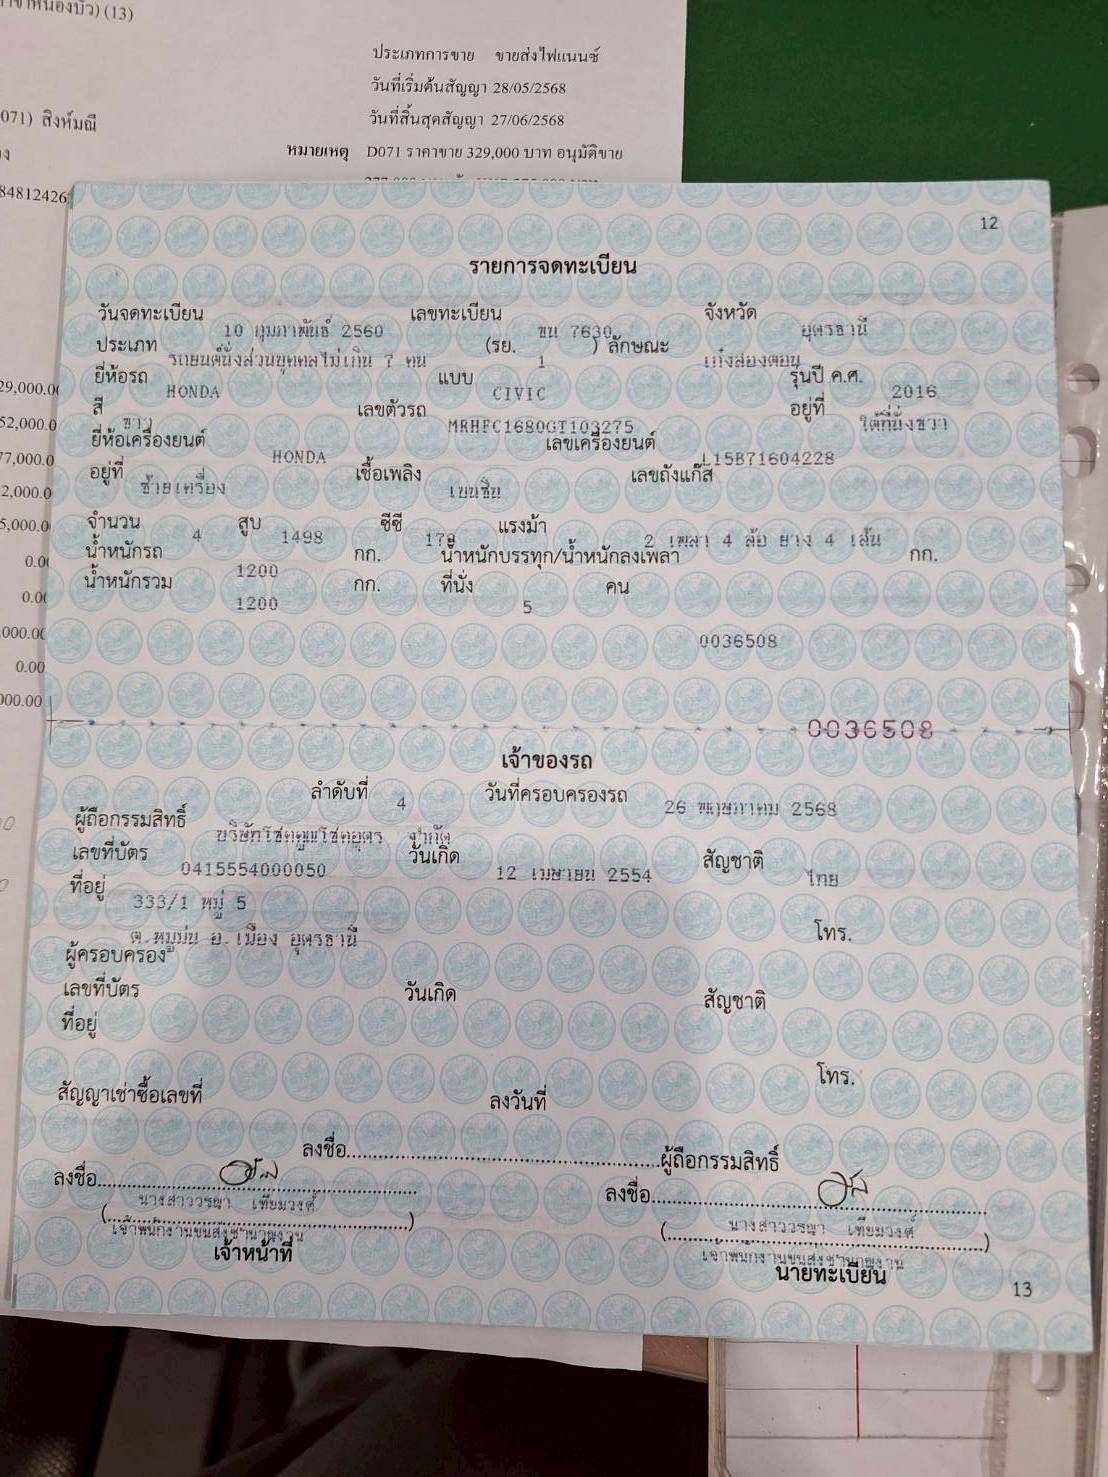 าขาหนองบัว) (13)
ประเภทการขาย ขายส่งไฟแนนซ์
วันที่เริ่มต้นสัญญา 28/05/2568
071) สิงห์มณี
วันที่สิ้นสุดสัญญา 27/06/2568
หมายเหตุ D071 ราคาขาย 329,000 บาท อนุมัติขาย
84812426
12
รายการจดทะเบียน
วันจดทะเบียน 10 กุมภาพันธ์ 2560 เลขทะเบียน ขน 7630 จังหวัด อุดรธานี
ประเภท รถยนต์นั่งส่วนบุคคลไม่เกิน 7 คน (รย. 1 ) ลักษณะ เก๋งสองตอน
ยี่ห้อรถ HONDA แบบ CIVIC รุ่นปี ค.ศ. 2016
สี ขาว เลขตัวรถ MRHFC1680GT103275 อยู่ที่ ใต้ที่นั่งขวา
ยี่ห้อเครื่องยนต์ HONDA เลขเครื่องยนต์ L15B71604228
อยู่ที่ ซ้ายเครื่อง เชื้อเพลิง เบนซิน เลขถังแก๊ส
จำนวน 4 สูบ 1498 ซีซี 173 แรงม้า 2 เพลา 4 ล้อ ยาง 4 เส้น
น้ำหนักรถ 1200 กก. น้ำหนักบรรทุก/น้ำหนักลงเพลา กก.
น้ำหนักรวม 1200 กก. ที่นั่ง 5 คน
0036508
0036508
เจ้าของรถ
ลำดับที่ 4 วันที่ครอบครองรถ 26 พฤษภาคม 2568
ผู้ถือกรรมสิทธิ์ บริษัทโชคคูณโชคอุดร จำกัด
เลขที่บัตร 0415554000050 วันเกิด 12 เมษายน 2554 สัญชาติ ไทย
ที่อยู่ 333/1 หมู่ 5
ต.หมูม่น อ.เมือง อุดรธานี โทร.
ผู้ครอบครอง
เลขที่บัตร วันเกิด สัญชาติ
ที่อยู่
โทร.
สัญญาเช่าซื้อเลขที่ ลงวันที่
ลงชื่อ ผู้ถือกรรมสิทธิ์
ลงชื่อ ลงชื่อ
(นางสาววรญา เทียมวงศ์) (นางสาววรญา เทียมวงศ์)
เจ้าพนักงานขนส่งชำนาญงาน เจ้าพนักงานขนส่งชำนาญงาน
เจ้าหน้าที่ นายทะเบียน
13